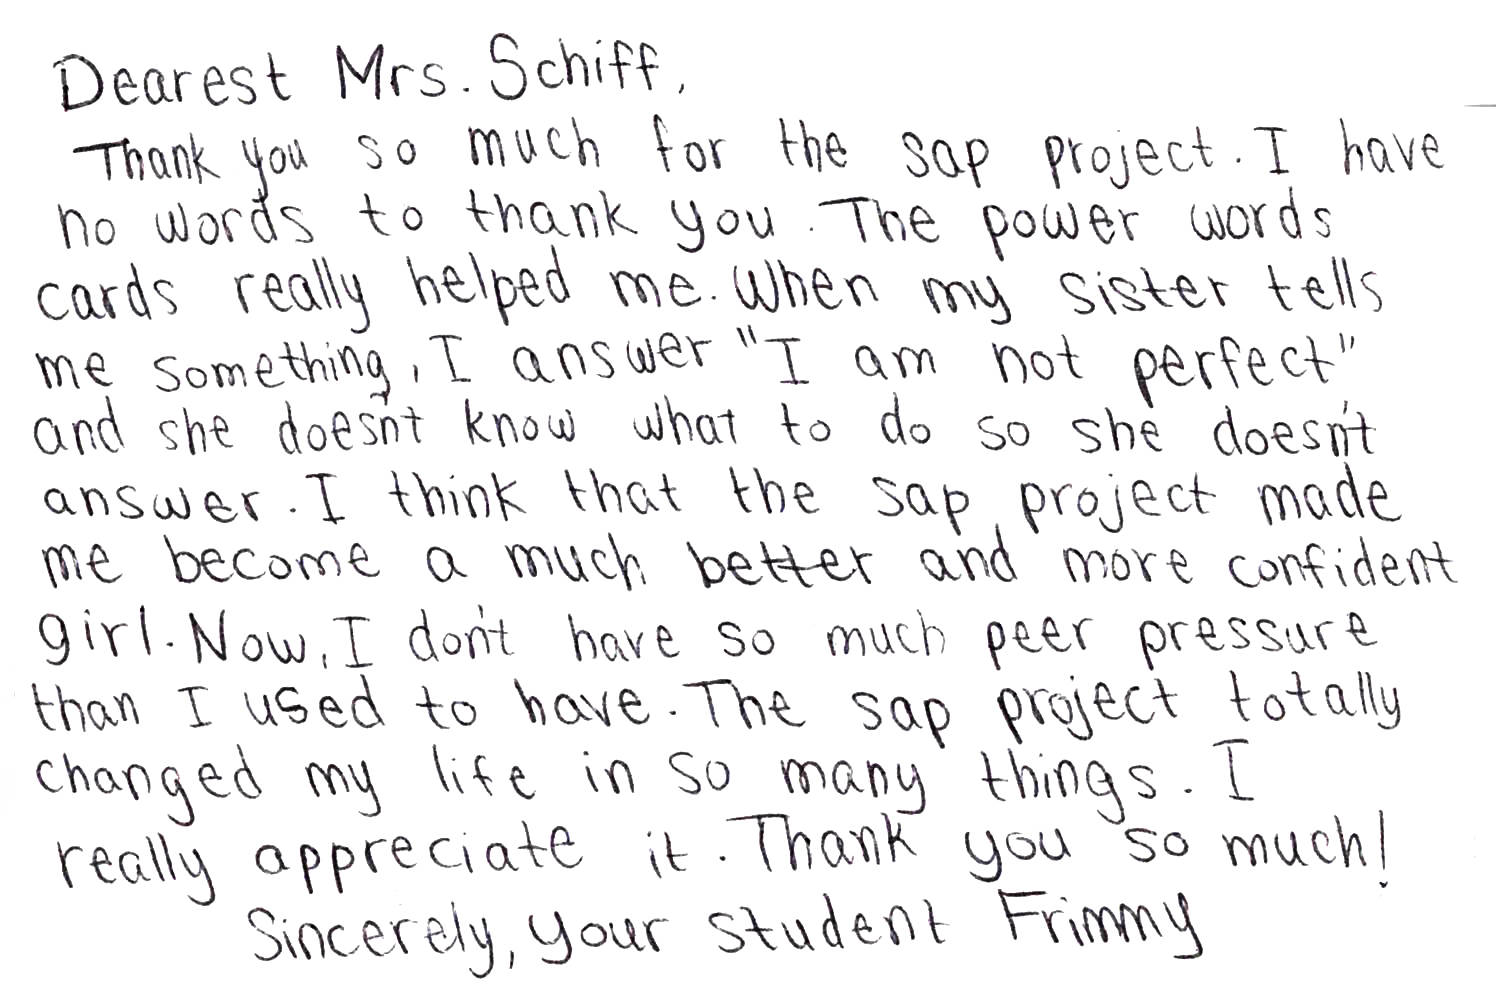 Dearest Mrs. Schiff,
Thank you so much for the sap project. I have
no words to thank you. The power words
cards really helped me. When my sister tells
me something, I answer "I am not perfect"
and she doesn't know what to do so she doesn't
answer. I think that the sap project made
me become a much better and more confident
girl. Now, I don't have so much peer pressure
than I used to have. The sap project totally
changed my life in so many things. I
really appreciate it. Thank you so much!
Sincerely, your student Frimmy